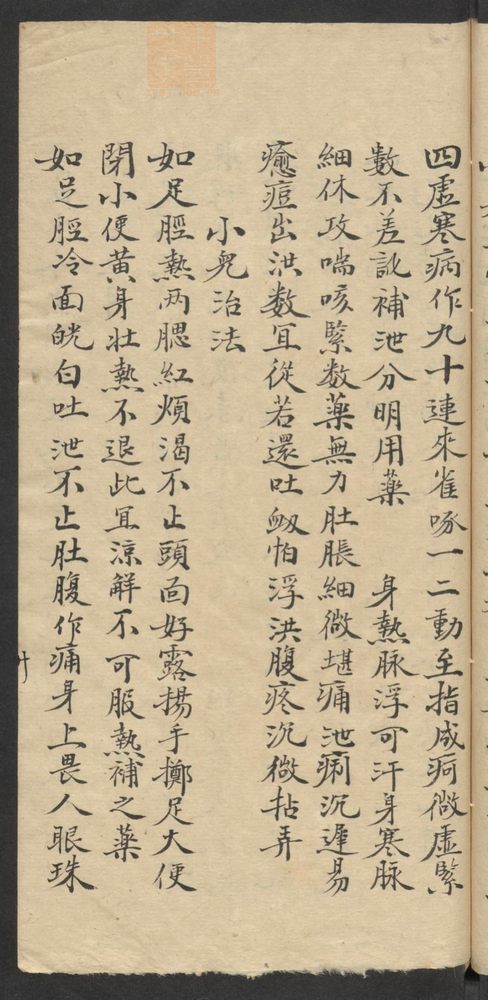 四虛寒病作九十連來雀啄一二動至指成疴微虛緊
數不差訛補泄分明用藥　身熱脉浮可汗身寒脉
細休攻喘咳緊数藥無力肚脹細微堪痛泄痢沉遲易
癒痘出洪数宜從若還吐衂怕浮洪腹疼沉微拈弄
小児治法
如足脛熱两腮紅煩渴不止頭面好露揚手擲足大便
閉小便黄身壮熱不退此宜涼解不可服熱補之藥
如足脛冷面㿠白吐泄不止肚腹作痛身上畏人眼珠